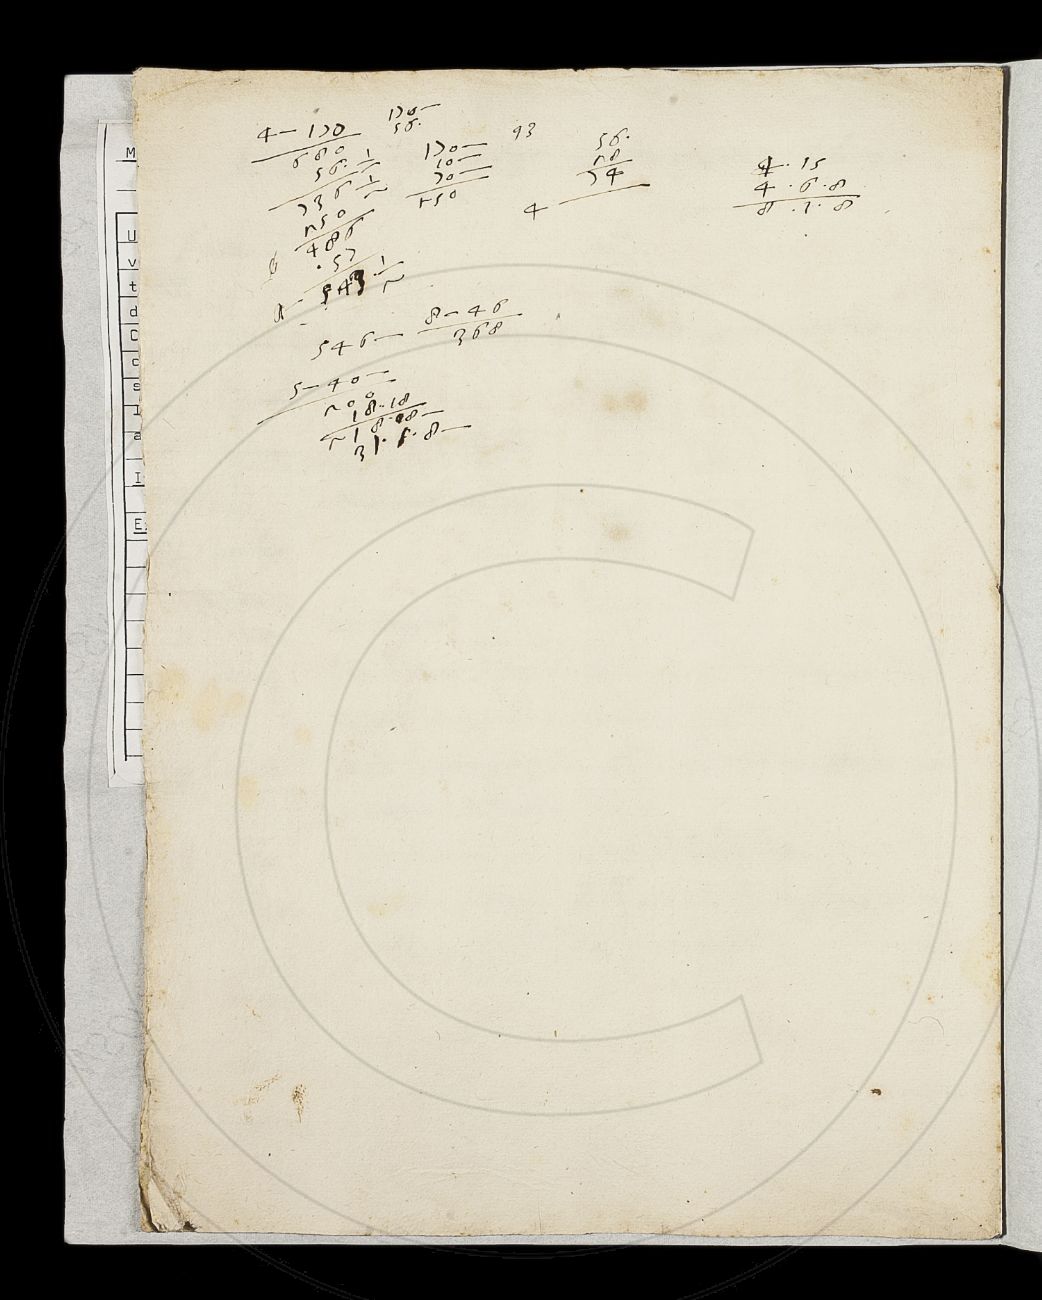 4 — 170
680
56 · 1/2
736 1/2
250
486
· 57
543 1/2
170 —
56 ·
170 —
10 —
70 —
250
93
56 ·
28
74
4
4 · 15
4 · 6 · 8
8 · 1 · 8
546 —
8 — 46
368
5 — 40 —
200
18 · 18
218 · 18 —